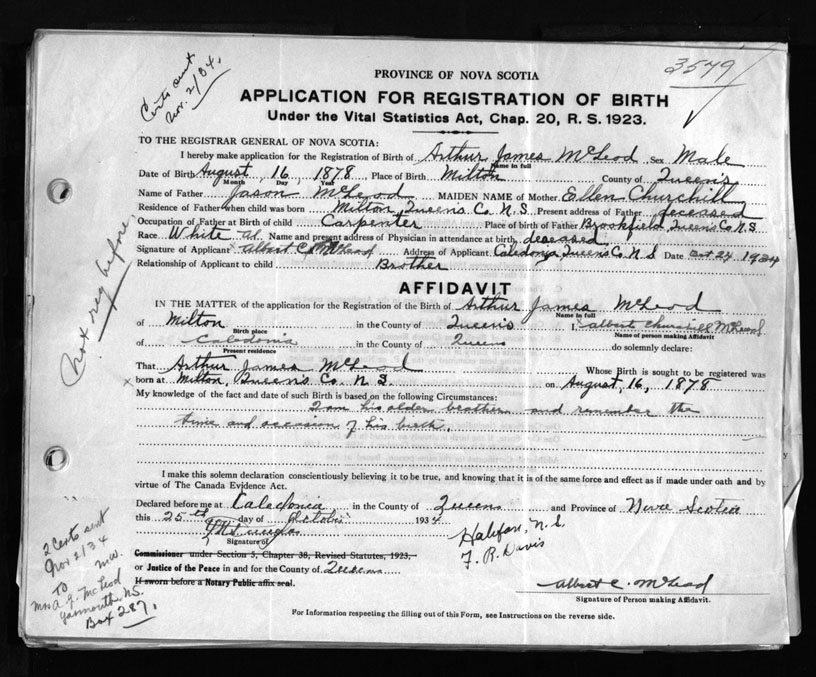 Certs sent
Nov. 2/34.
3579
PROVINCE OF NOVA SCOTIA
APPLICATION FOR REGISTRATION OF BIRTH
Under the Vital Statistics Act, Chap. 20, R. S. 1923.
TO THE REGISTRAR GENERAL OF NOVA SCOTIA:
I hereby make application for the Registration of Birth of Arthur James McLeod Sex Male
Name in full
Date of Birth August, 16, 1878 Place of Birth Milton County of Queens
Month Day, Year
Name of Father Jason McLeod MAIDEN NAME of Mother Ellen Churchill
Residence of Father when child was born Milton, Queens Co. N.S. Present address of Father deceased
Occupation of Father at Birth of child Carpenter Place of birth of Father Brookfield Queens Co N.S.
Race White Name and present address of Physician in attendance at birth, deceased
Signature of Applicant Albert C. McLeod Address of Applicant Caledonia Queens Co. N.S Date Oct 24 1934
Relationship of Applicant to child Brother
Not reg before,
AFFIDAVIT
IN THE MATTER of the application for the Registration of the Birth of Arthur James McLeod
Name in full
of Milton in the County of Queens I, Albert Churchill McLeod
Birth place Name of Person making Affidavit
of Caledonia in the County of Queens do solemnly declare:
Present residence
That Arthur James McLeod Whose Birth is sought to be registered was
x born at Milton, Queens Co. N.S. on August, 16, 1878
My knowledge of the fact and date of such Birth is based on the following Circumstances:
I am his older brother and remember the
time and occasion of his birth.
I make this solemn declaration conscientiously believing it to be true, and knowing that it is of the same force and effect as if made under oath and by
virtue of The Canada Evidence Act.
Declared before me at Caledonia in the County of Queens and Province of Nova Scotia
this 25th day of October 1934
Signature of
Halifax, N.S.
F. R. Davis
Commissioner under Section 3, Chapter 38, Revised Statutes, 1923,
or Justice of the Peace in and for the County of Queens
If sworn before a Notary Public affix seal.
Albert C. McLeod
Signature of Person making Affidavit.
For Information respecting the filling out of this Form, see Instructions on the reverse side.
2 Certs sent
Nov 2/34
mw.
To
Mrs A. J. McLeod
Yarmouth, N.S.
Box 287.